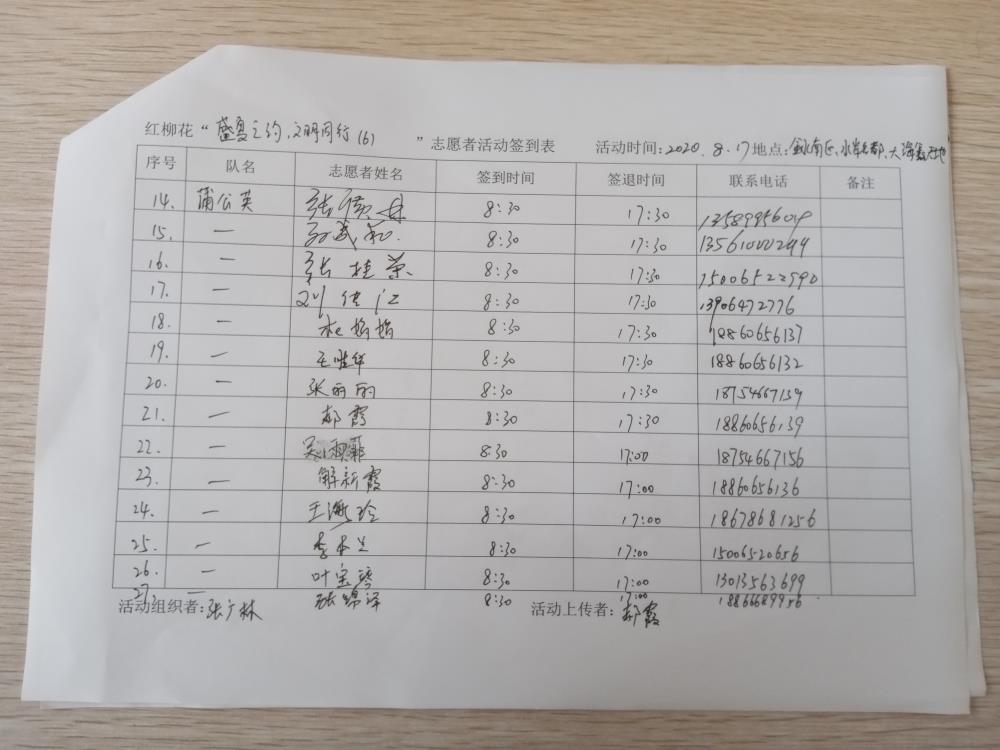 红柳花“盛夏之约，文明同行(6)”志愿者活动签到表 活动时间：2020.8.17 地点：
序号 队名 志愿者姓名 签到时间 签退时间 联系电话 备注
14. 蒲公英 8:30 17:30 13589956049
15. — 8:30 17:30 13561000299
16. — 张桂荣 8:30 17:30 15006522990
17. — 8:30 17:30 13906472776
18. — 8:30 17:30 18860656137
19. — 王胜华 8:30 17:30 18860656132
20. — 张丽丽 8:30 17:30 18754667139
21. — 郝霞 8:30 17:30 18860656139
22. — 8:30 17:00 18754667156
23. — 解新霞 8:30 17:00 18860656136
24. — 王海玲 8:30 17:00 18678681256
25. — 李本兰 8:30 17:00 15006520656
26. — 叶宝琴 8:30 17:00 13013563699
27. 张锦译 8:30 17:00 18866689956
活动组织者：张广林 活动上传者：郝霞